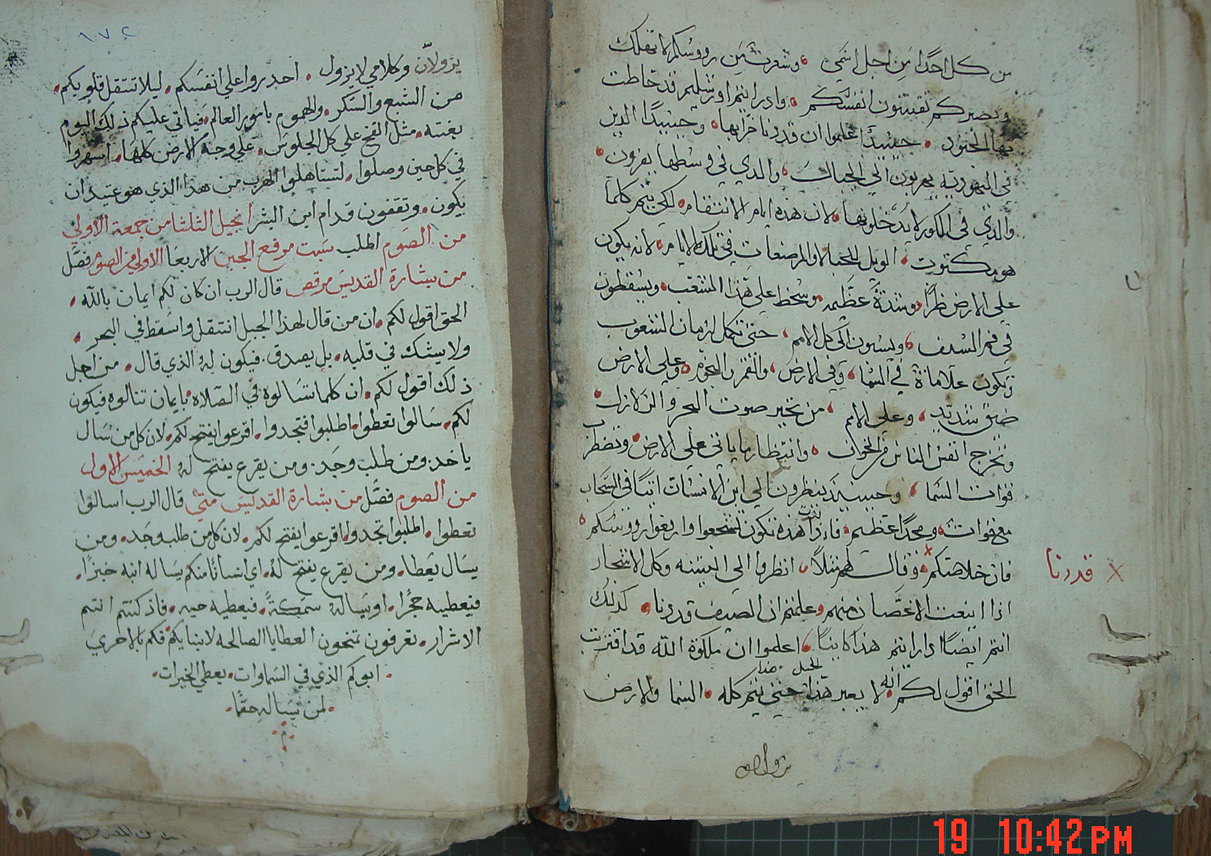 من كل احدا من اجل اسمي وشعرت من رووسكم لا تهلك
وبصبركم تقيتنون انفسكم وادا رايتم اورشليم قد حاطت
بها الجنود حينيدا اعلموا ان قد دنا خرابها وحينيدا الدين
في اليهودية يهربون الى الجبال والدي في وسطها يفرون
والدي في الكور لا يدخلونها لان هده ايام الانتقام لكي يتم كلما
هو مكتوب الويل للحبالا والمرضعات في تلك الايام لانه يكون
على الارض ضرا وشدة عظيمه وسخط على هدا الشعب ويسقطون
في فم السيف ويسبون الى كل الامم حتى تكمل ازمان الشعوب
تكون علامات في السما وفي الارض والقمر والنجوم وعلى الارض
ضيق شديد وعلى الامم من تحير صوت البحر والزلازل
وتخرج انفس الناس من الخوف وانتظار ما ياتي على الارض وتضطر
قوات السما وحينيد ينظرون الى ابن الانسان اتيا في السحاب
مع قوات ومجدا عظيم فاذا هده تكون تشجعوا وارفعوا رووسكم
فان خلاصكم وقال لهم مثلا انظروا الى التينه وكل الاشجار
× قد دنا
اذا اينعت الاغصان منهم وعلمتم ان الصيف قد دنا كدلك
انتم ايضا ادا رايتم هدا كاينا اعلموا ان ملكوة الله قد اقتربت
الحق اقول لكم انه لا يعبر هذا الجيل حتى يتم كله السما والارض
يزولان
٨٧٤
يزولان وكلامي لا يزول احدروا على انفسكم ليلا تتثقل قلوبكم
من الشبع والسكر والهموم بامور العالم فياتي عليكم ذلك اليوم
بغته مثل الفخ على كل الجلوس على وجه الارض كلها اسهروا
في كل حين وصلوا لتستاهلوا الهرب من هدا الذي هو عتيد ان
يكون وتقفون قدام ابن البشر انجيل الثلثا من جمعة الاولي
من الصوم الملب سبت مرفع الجبن الاربعا الاولي من الصوم فصل
من بشارة القديس مرقص قال الرب ان كان لكم ايمان بالله
الحق اقول لكم ان من قال لهذا الجبل انتقل واسقط في البحر
ولا يشك في قلبه بل يصدق فيكون له الذي قال من اجل
ذلك اقول لكم ان كلما تسالوه في الصلاه بايمان تنالوه فيكون
لكم سالوا تعطوا اطلبوا فتجدوا اقرعوا يفتح لكم لان كل من سال
ياخد ومن طلب وجد ومن يقرع يفتح له الخميس الاول
من الصوم فصل من بشارة القديس متى قال الرب اسالوا
تعطوا اطلبوا تجدوا اقرعوا يفتح لكم لان كل من طلب وجد ومن
يسال يعطا ومن يقرع يفتح له اي انسانا منكم يساله ابنه خبزا
فيعطيه حجرا او يساله سمكة فيعطيه حيه فاذ كنتم انتم
الاشرار تعرفون تمنحون العطايا الصالحه لابنايكم فكم بالاحري
ابوكم الذي في السماوات يعطي الخيرات
لمن يساله حقا